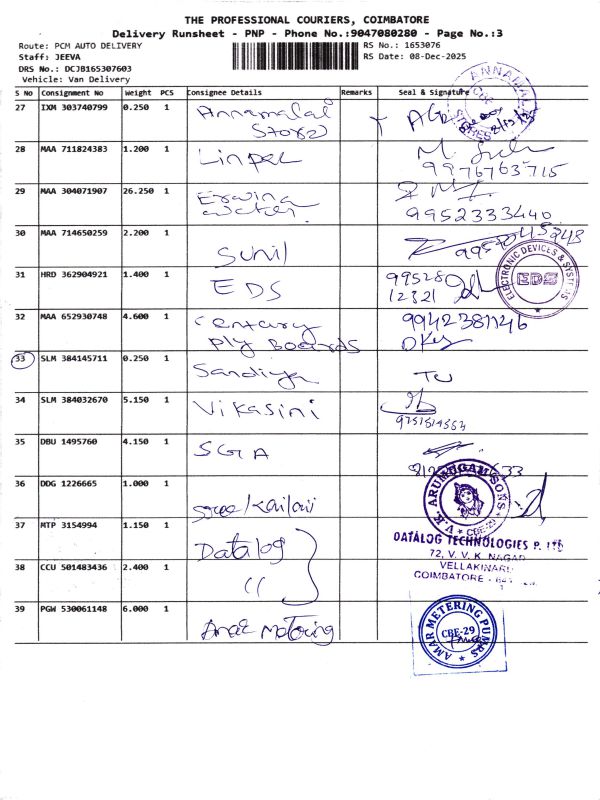 THE PROFESSIONAL COURIERS, COIMBATORE
Delivery Runsheet - PNP - Phone No.:9047080280 - Page No.:3
Route: PCM AUTO DELIVERY
RS No.: 1653076
Staff: JEEVA
RS Date: 08-Dec-2025
DRS No.: DCJB165307603
Vehicle: Van Delivery
S No Consignment No Weight PCS Consignee Details Remarks Seal & Signature
27 IXM 303740799 0.250 1 Annamalai
Stores
28 MAA 711824383 1.200 1
9976763715
29 MAA 304071907 26.250 1
9952333440
30 MAA 714650259 2.200 1 Sunil
31 HRD 362904921 1.400 1 EDS 99528
12321
ELECTRONIC DEVICES & SYSTEMS
EDS
32 MAA 652930748 4.600 1 Century
Ply Boards
33 SLM 384145711 0.250 1 Sandiya
34 SLM 384032670 5.150 1 Vikasini
35 DBU 1495760 4.150 1 SGA
36 DDG 1226665 1.000 1
V.K. ARUMUGAM SONS
CBE-29
37 MTP 3154994 1.150 1 Datalog
DATALOG TECHNOLOGIES P. Ltd
72, V. V. K. NAGAR
VELLAKINARU
COIMBATORE -
38 CCU 501483436 2.400 1 "
39 PGW 530061148 6.000 1 Amar Metering
AMAR METERING PUMPS
CBE-29